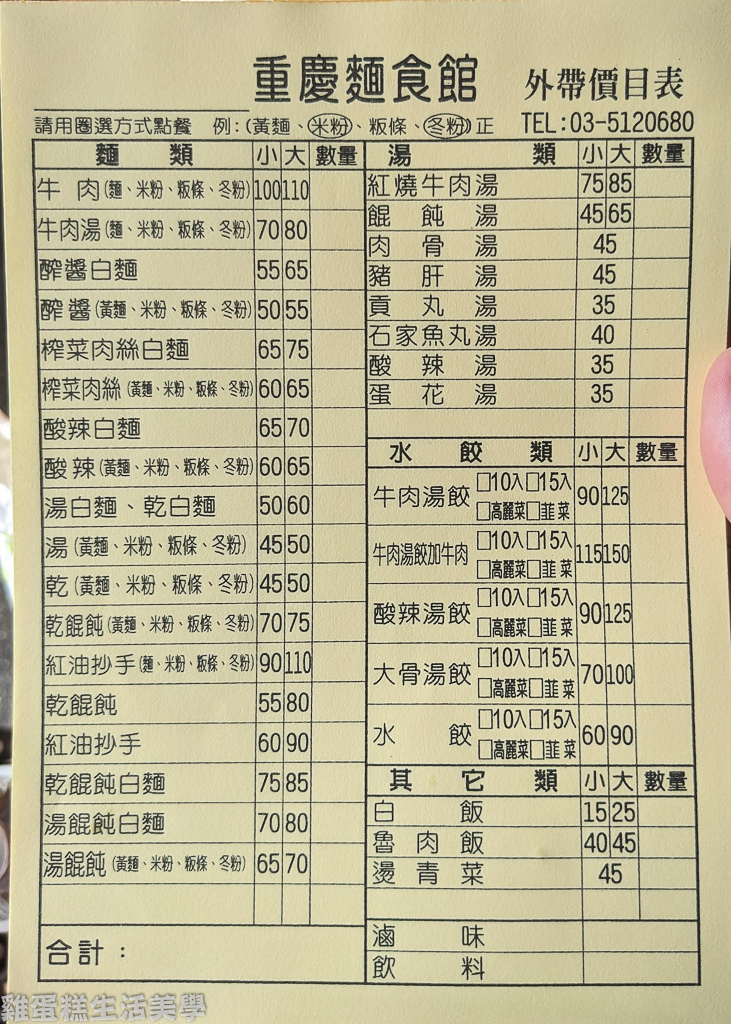 重慶麵食館 外帶價目表
請用圈選方式點餐 例:(黃麵、米粉、粄條、冬粉)正 TEL:03-5120680
麵類 小 大 數量
牛肉(麵、米粉、粄條、冬粉) 100 110
牛肉湯(麵、米粉、粄條、冬粉) 70 80
醡醬白麵 55 65
醡醬(黃麵、米粉、粄條、冬粉) 50 55
榨菜肉絲白麵 65 75
榨菜肉絲(黃麵、米粉、粄條、冬粉) 60 65
酸辣白麵 65 70
酸辣(黃麵、米粉、粄條、冬粉) 60 65
湯白麵、乾白麵 50 60
湯(黃麵、米粉、粄條、冬粉) 45 50
乾(黃麵、米粉、粄條、冬粉) 45 50
乾餛飩(黃麵、米粉、粄條、冬粉) 70 75
紅油抄手(麵、米粉、粄條、冬粉) 90 110
乾餛飩 55 80
紅油抄手 60 90
乾餛飩白麵 75 85
湯餛飩白麵 70 80
湯餛飩(黃麵、米粉、粄條、冬粉) 65 70
合計:
湯類 小 大 數量
紅燒牛肉湯 75 85
餛飩湯 45 65
肉骨湯 45
豬肝湯 45
貢丸湯 35
石家魚丸湯 40
酸辣湯 35
蛋花湯 35
水餃類 小 大 數量
牛肉湯餃 □10入□15入 90 125
□高麗菜□韮菜
牛肉湯餃加牛肉 □10入□15入 115 150
□高麗菜□韮菜
酸辣湯餃 □10入□15入 90 125
□高麗菜□韮菜
大骨湯餃 □10入□15入 70 100
□高麗菜□韮菜
水餃 □10入□15入 60 90
□高麗菜□韮菜
其它類 小 大 數量
白飯 15 25
魯肉飯 40 45
燙青菜 45
滷味
飲料
雞蛋糕生活美學